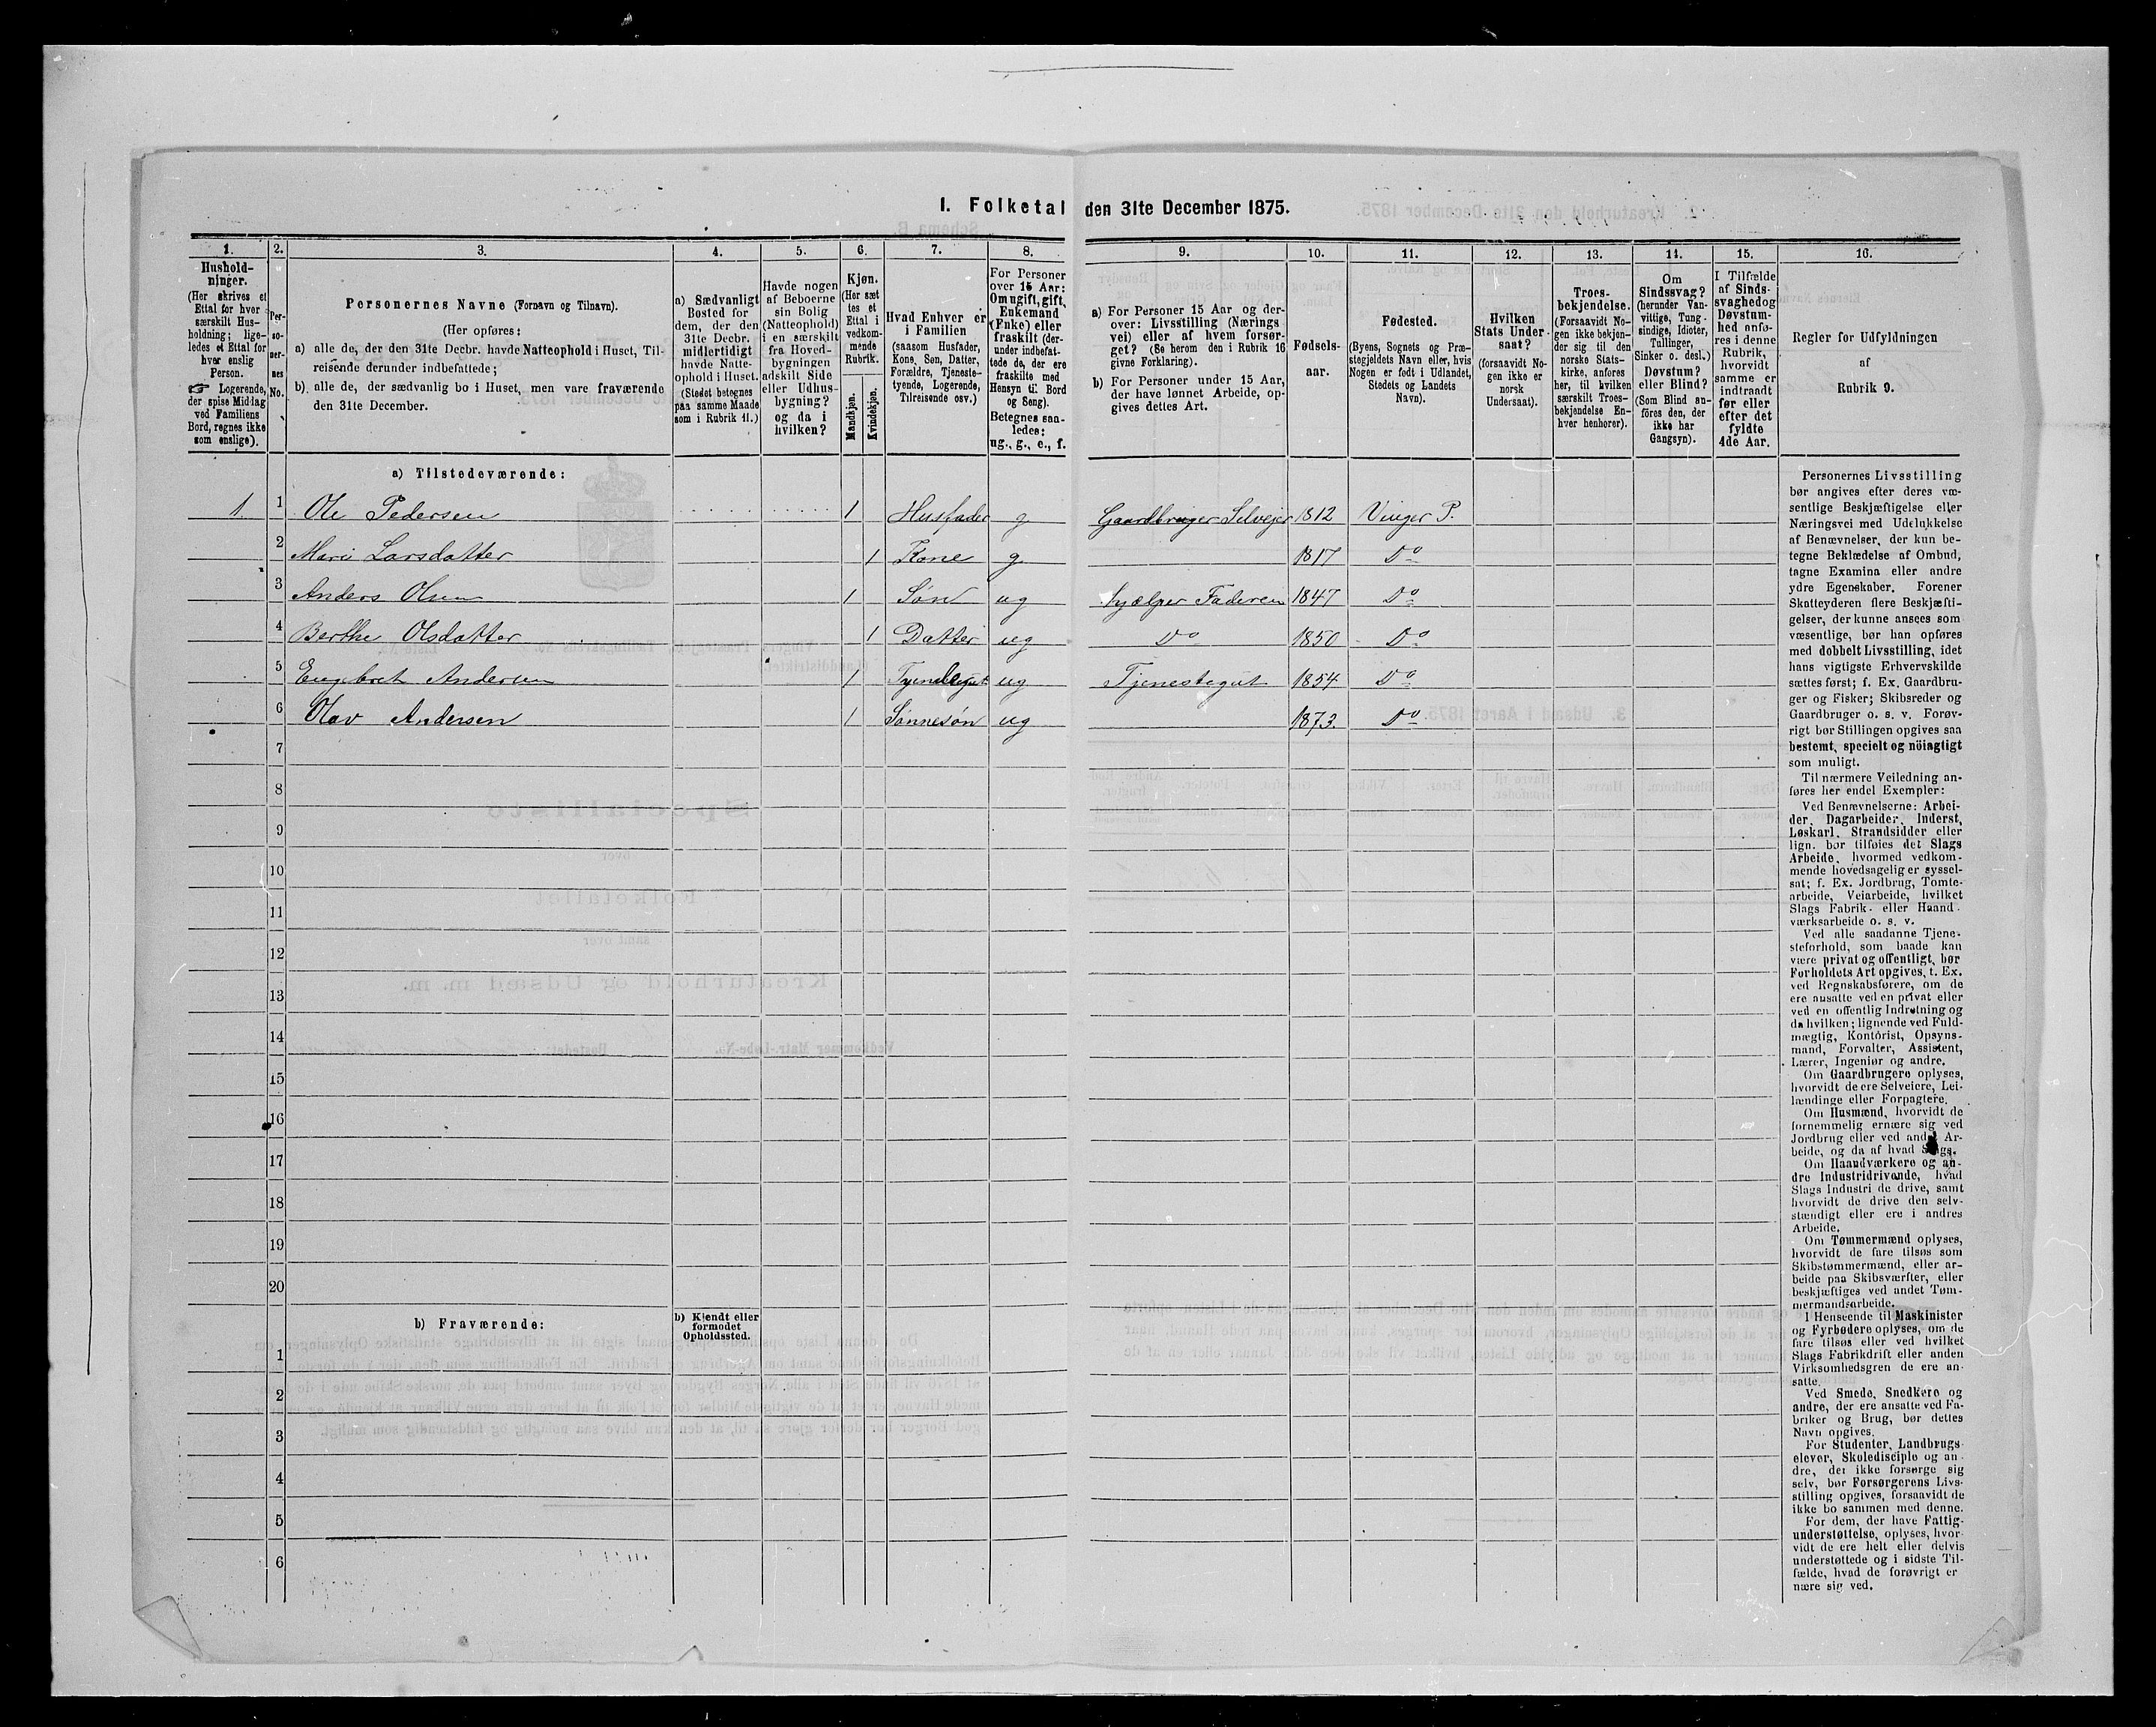 1. Folketal den 31te December 1875.
1. 2. 3. 4. 5. 6. 7. 8. 9. 10. 11. 12. 13. 14. 15. 16.
Hushold-
ninger.
(Her skrives et
Ettal for hver
særskilt Hus-
holdning; lige-
ledes et Ettal for
hver enslig
Person.
☞ Logerende,
der spise Middag
ved Familiens
Bord, regnes ikke
som enslige).
Per-
so-
ner-
nes
No.
Personernes Navne (Fornavn og Tilnavn).
(Her opføres:
a) alle de, der den 31te Decbr. havde Natteophold i Huset, Til-
reisende derunder indbefattede;
b) alle de, der sædvanlig bo i Huset, men vare fraværende
den 31te December.
a) Sædvanligt
Bosted for
dem, der den
31te Decbr.
midlertidigt
havde Natte-
ophold i Huset.
(Stedet betegnes
paa samme Maade
som i Rubrik 11.)
Havde nogen
af Beboerne
sin Bolig
(Natteophold)
i en særskilt
fra Hoved-
bygningen
adskilt Side
eller Udhus-
bygning?
og da i
hvilken?
Kjøn.
(Her sæt
tes et
Ettal i
vedkom-
mende
Rubrik.
Mandkjøn.
Kvindekjøn.
Hvad Enhver er
i Familien
(saasom Husfader,
Kone, Søn, Datter,
Forældre, Tjeneste-
tyende, Logerende,
Tilreisende osv.)
For Personer
over 15 Aar:
Om ugift, gift,
Enkemand
(Enke) eller
fraskilt (der-
under indbefat-
tede de, der ere
fraskilte med
Hensyn til Bord
og Seng).
Betegnes saa-
ledes:
ug., g., e., f.
a) For Personer 15 Aar og der-
over: Livsstilling (Nærings
vei) eller af hvem forsør-
get? (Se herom den i Rubrik 16
givne Forklaring).
b) For Personer under 15 Aar,
der have lønnet Arbeide, op-
gives dettes Art.
Fødsels-
aar.
Fødested.
(Byens, Sognets og Præ-
stegjeldets Navn eller, hvis
Nogen er født i Udlandet,
Stedets og Landets
Navn).
Hvilken
Stats Under-
saat?
(forsaavidt No-
gen ikke er
norsk
Undersaat).
Troes-
bekjendelse.
(Forsaavidt No-
gen ikke bekjen-
der sig til den
norske Stats-
kirke, anføres
her, til hvilken
særskilt Troes-
bekjendelse En-
hver henhører).
Om
Sindssvag?
(herunder Van-
vittige, Tung-
sindige, Idioter,
Tullinger,
Sinker o. desl.)
Døvstum?
eller Blind?
(Som Blind an-
föres den, der
ikke har
Gangsyn).
I Tilfælde
af Sinds-
svaghed og
Døvstum-
hed anfø-
res i denne
Rubrik,
hvorvidt
samme er
indtraadt
før eller
efter det
fyldte
4de Aar.
Regler for Udfyldningen
af
Rubrik 9.
a) Tilstedeværende:
1 1 Ole Pedersen 1 Husfader g Gaardbruger Selveier 1812 Vinger P.
2 Mari Larsdatter 1 Kone g 1817 Do
3 Anders Olsen 1 Søn ug hjælper Faderen 1847 Do
4 Berthe Olsdatter 1 Datter ug Do 1850 Do
5 Engebret Andersen 1 ug Tjenestegut 1854 Do
6 Olav Andersen 1 Sønnesøn ug 1873. Do
7
8
9
10
11
12
13
14
15
16
17
18
19
20
b) Fraværende:
b) Kjendt eller
formodet
Opholdssted.
1
2
3
4
5
6
Personernes Livsstilling
bør angives efter deres væ-
sentlige Beskjæftigelse eller
Næringsvei med Udelukkelse
af Benævnelser, der kun be-
tegne Beklædelse af Ombud,
tagne Examina eller andre
ydre Egenskaber. Forener
Skatteyderen flere Beskjæfti-
gelser, der kunne ansees som
væsentlige, bør han opføres
med dobbelt Livsstilling, idet
hans vigtigste Erhvervskilde
sættes først; f. Ex. Gaardbru-
ger og Fisker; Skibsreder og
Gaardbruger o. s. v. Forøv-
rigt bør Stillingen opgives saa
bestemt, specielt og nöiagtigt
som muligt.
Til nærmere Veiledning an-
føres her endel Exempler:
Ved Benævnelserne: Arbei-
der, Dagarbeider, Inderst,
Løskarl, Strandsidder eller
lign. bør tilføies det Slags
Arbeide, hvormed vedkom-
mende hovedsagelig er syssel-
sat; f. Ex. Jordbrug, Tomte-
arbeide, Veiarbeide, hvilket
Slags Fabrik- eller Haand
værksarbeide o. s. v.
Ved alle saadanne Tjene-
steforhold, som baade kan
være privat og offentligt, bør
Forholdets Art opgives, t. Ex.
ved Regnskabsførere, om de
ere ansatte ved en privat eller
ved en offentlig Indretning og
da hvilken; lignende ved Fuld-
mægtig, Kontorist, Opsyns-
mand, Forvalter, Assistent,
Lærer, Ingeniør og andre.
Om Gaardbrugere oplyses,
hvorvidt de ere Selveiere, Lei-
lændinge eller Forpagtere.
Om Husmænd, hvorvidt de
fornemmelig ernære sig ved
Jordbrug eller ved andet Ar-
beide, og da af hvad Slags.
Om Haandværkere og an-
dre Industridrivende, hvad
Slags Industri de drive, samt
hvorvidt de drive den selv-
stændigt eller ere i andres
Arbeide.
Om Tømmermænd oplyses,
hvorvidt de fare tilsøs som
Skibstømmermænd, eller ar-
beide paa Skibsværfter, eller
beskjæftiges ved andet Tøm-
mermandsarbeide.
I Henseende til Maskinister
og Fyrbødere oplyses, om de
fare tilsøs eller ved hvilket
Slags Fabrikdrift eller anden
Virksomhedsgren de ere an-
satte.
Ved Smede, Snedkere og
andre, der ere ansatte ved Fa-
briker og Brug, bør dettes
Navn opgives.
For Studenter, Landbrugs-
elever, Skoledisciple og an-
dre, der ikke forsørge sig
selv, bør Forsørgerens Livs-
stilling opgives, forsaavidt de
ikke bo sammen med denne.
For dem, der have Fattig-
understøttelse, oplyses, hvor-
vidt de ere helt eller delvis
understøttede og i sidste Til-
fælde, hvad de forøvrigt er
nære sig ved.